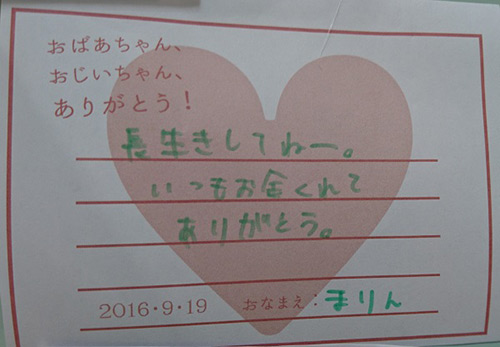 おばあちゃん、
おじいちゃん、
ありがとう!
長生きしてねー。
いつもお金くれて
ありがとう。
2016・9・19 おなまえ:まりん